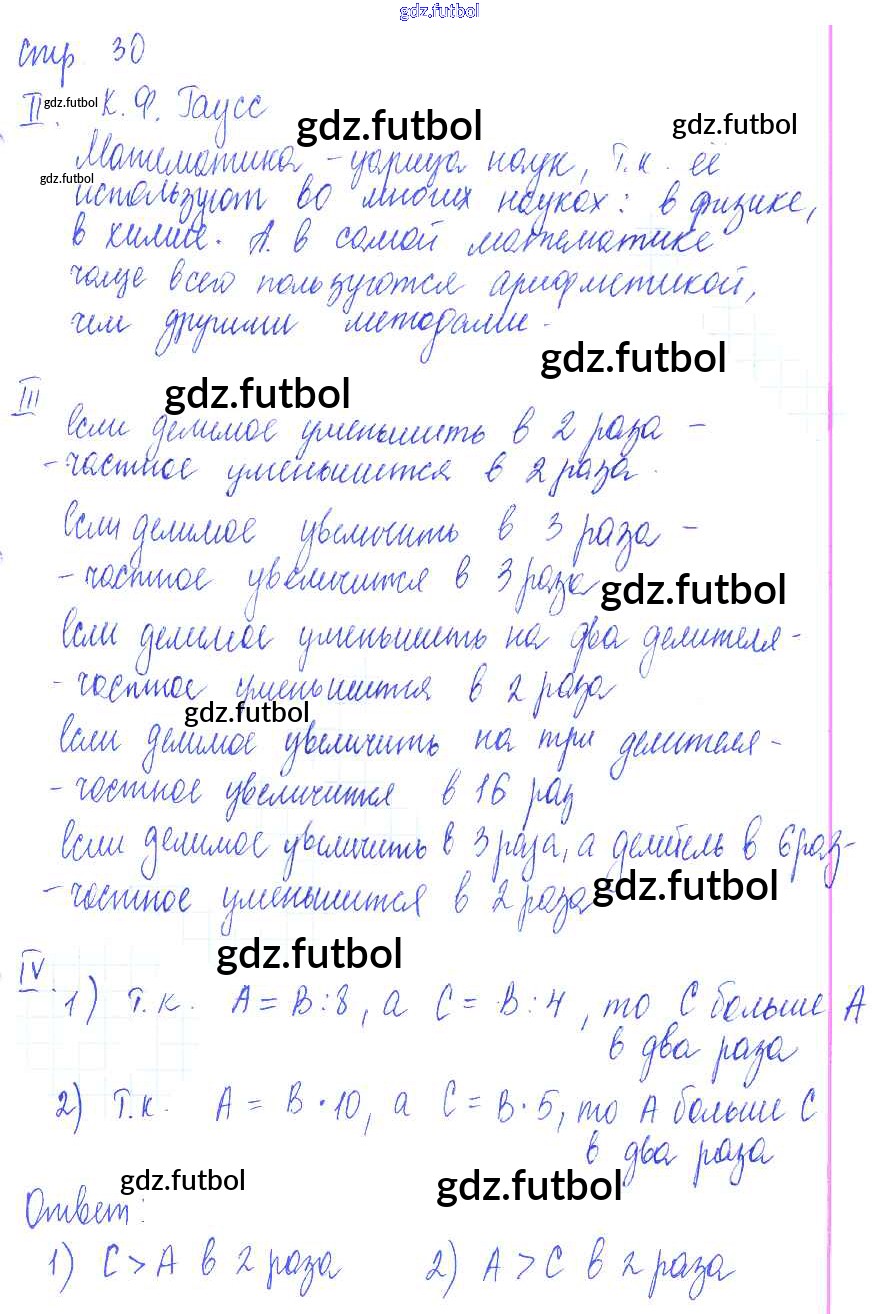 gdz.futbol
стр 30
II. gdz.futbol К. Ф. Гаусс
gdz.futbol gdz.futbol
Математика - царица наук, т.к. её
gdz.futbol
используют во многих науках: в физике,
в химие. А. в самой математике
чаще всего пользуются арифметикой,
чем другими методами.
gdz.futbol
III gdz.futbol
Если делимое уменьшить в 2 раза -
- частное уменьшится в 2 раза.
Если делимое увеличить в 3 раза -
- частное увеличится в 3 раза
gdz.futbol
Если делимое уменьшить на два делителя -
- частное уменьшится в 2 раза
gdz.futbol
Если делимое увеличить на три делителя -
- частное увеличится в 16 раз
Если делимое увеличить в 3 раза, а делитель в 6 раз -
- частное уменьшится в 2 раза
gdz.futbol
gdz.futbol
IV.
1) Т.к. А = В : 8, а С = В : 4, то С больше А
в два раза
2) Т.к. А = В · 10, а С = В · 5, то А больше С
в два раза
gdz.futbol gdz.futbol
Ответ:
1) С > А в 2 раза 2) А > С в 2 раза